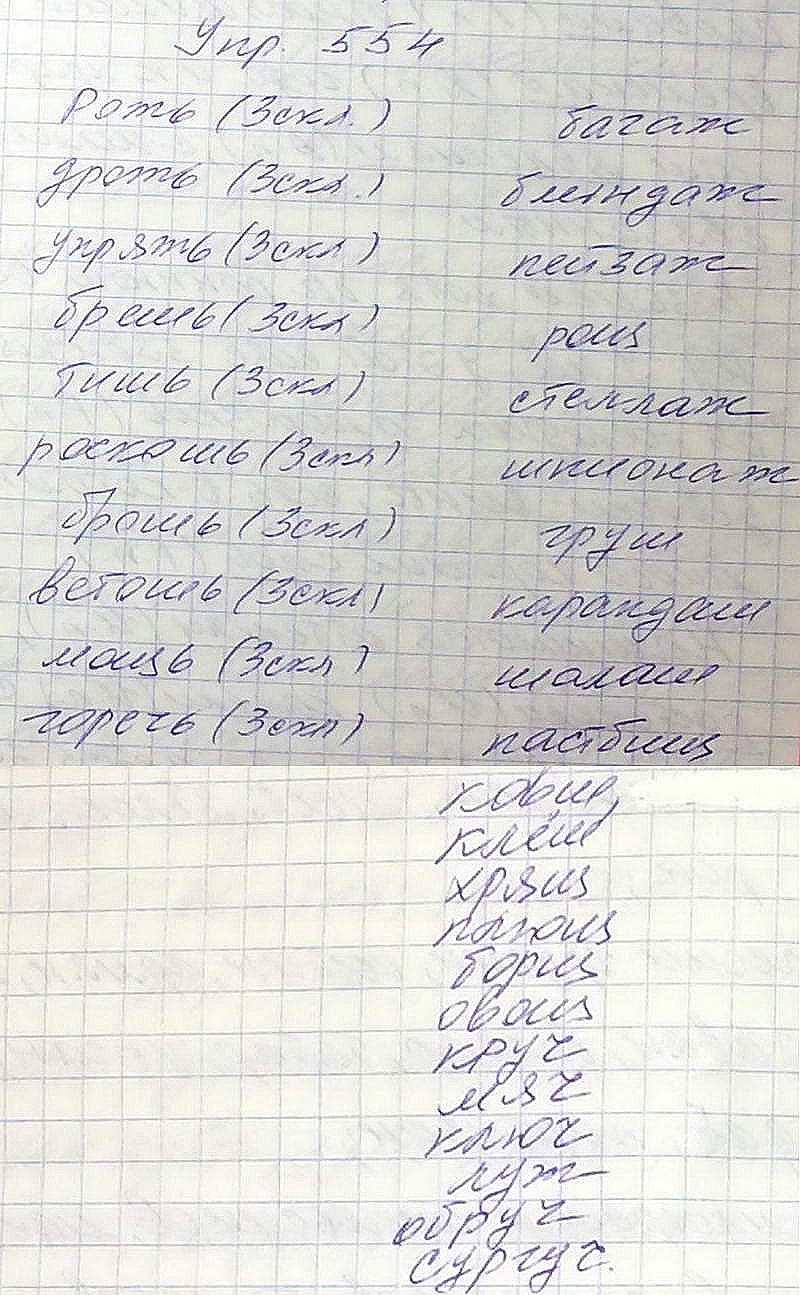 Упр. 554
Рожь (3скл.) багаж
дрожь (3скл.) блиндаж
упряжь (3скл) пейзаж
брешь (3скл) рощ
тишь (3скл) стеллаж
роскошь (3скл) шпионаж
брошь (3скл) груш
ветошь (3скл) карандаш
мощь (3скл) шалаш
горечь (3скл) пастбищ
ковш
клёш
хрящ
плющ
борщ
овощ
круч
мяч
ключ
луж
обруч
сургуч.